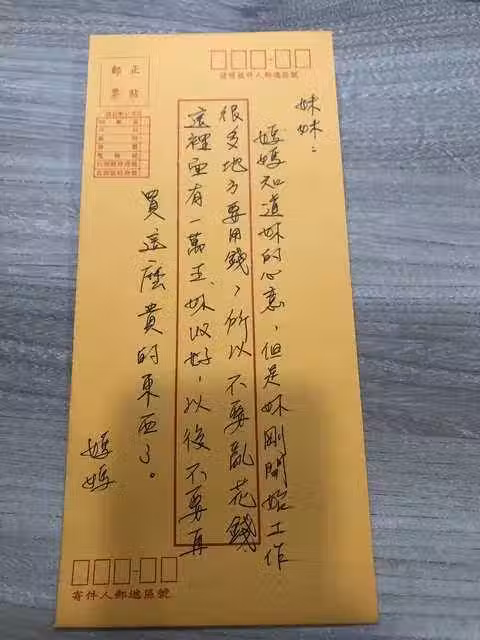 妹妹：
媽媽知道妳的心意，但是妳剛開始工作
很多地方要用錢，所以不要亂花錢
這裡面有一萬五、妳收好，以後不要再
買這麼貴的東西了。
媽媽
正貼
郵票
請寫收件人郵遞區號
寄件人郵遞區號